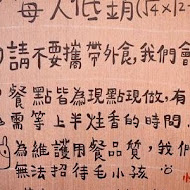 每人低銷(√4×12-
請不要攜帶外食,我們會
餐點皆為現點現做,有
需等上半炷香的時間.
為維護用餐品質,我們
無法招待毛小孩